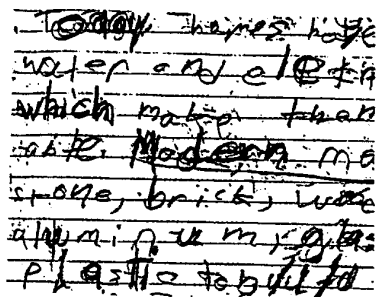 . Today homes have
water and elect
which make them
able. Modern ma
stone, brick, woo
aluminum, glas
plastic to build